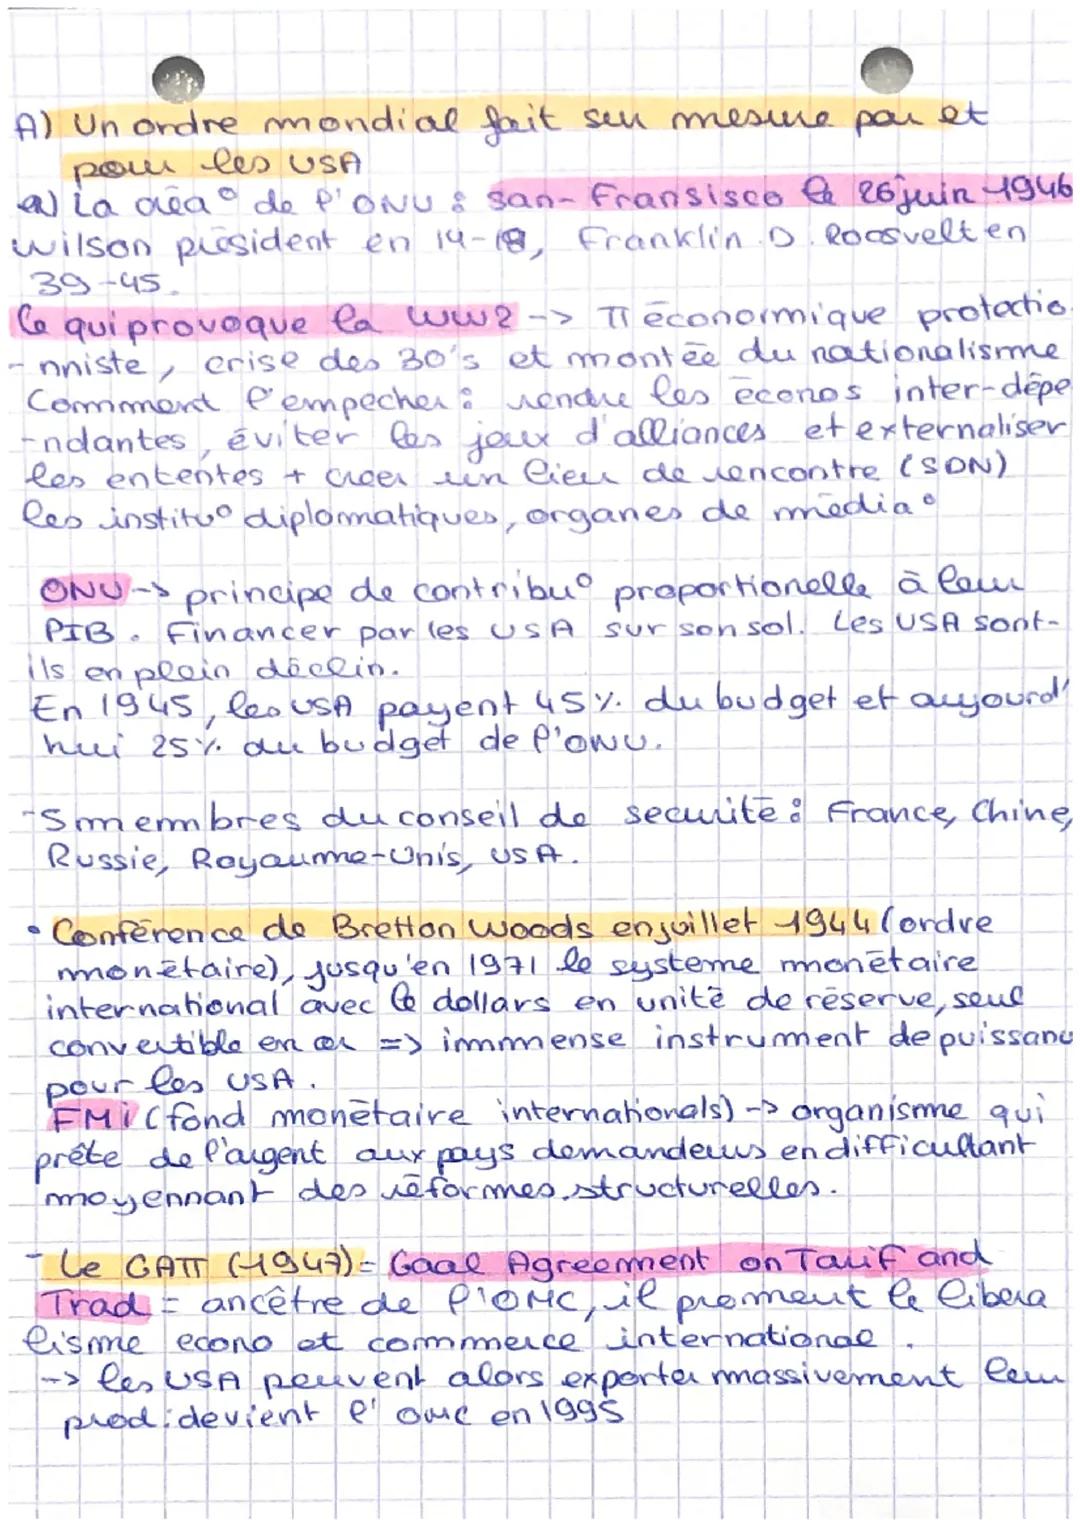 A) Un ordre mondial fait sur mesure par et
pour les USA
a) La créa° de l'ONU : San-Fransisco le 26 juin 1946
Wilson président en 14-18, Franklin .D. Roosvelt en
39-45.
Ce qui provoque la WW2 --> π économique protectio-
-nniste, crise des 30's et montée du nationalisme
Comment l'empecher : rendre les éconos inter-dépe
-ndantes, éviter les jeux d'alliances et externaliser
les ententes + créer un lieu de rencontre (SDN)
les institu° diplomatiques, organes de média°
ONU --> principe de contribu° proportionelle à leur
PIB. Financer par les USA sur son sol. Les USA sont-
ils en plein déclin.
En 1945, les USA payent 45 %. du budget et aujourd'
hui 25 %. du budget de l'ONU.
-5 membres du conseil de securité : France, Chine,
Russie, Royaume-Unis, USA.
• Conférence de Bretton Woods en juillet 1944 (ordre
monétaire), jusqu'en 1971 le systeme monétaire
international avec le dollars en unité de réserve, seul
convertible en or => immense instrument de puissance
pour les USA.
FMi (fond monétaire internationals) --> organisme qui
prête de l'argent aux pays demandeurs en difficultant
moyennant des réformes structurelles.
- Le GATT (1947) = Gaal Agreement on Tarif and
Trad = ancêtre de l'OMC, il promeut le libera
lisme econo et commerce internationae .
--> les USA peuvent alors exporter massivement leur
prod : devient l'omc en 1995